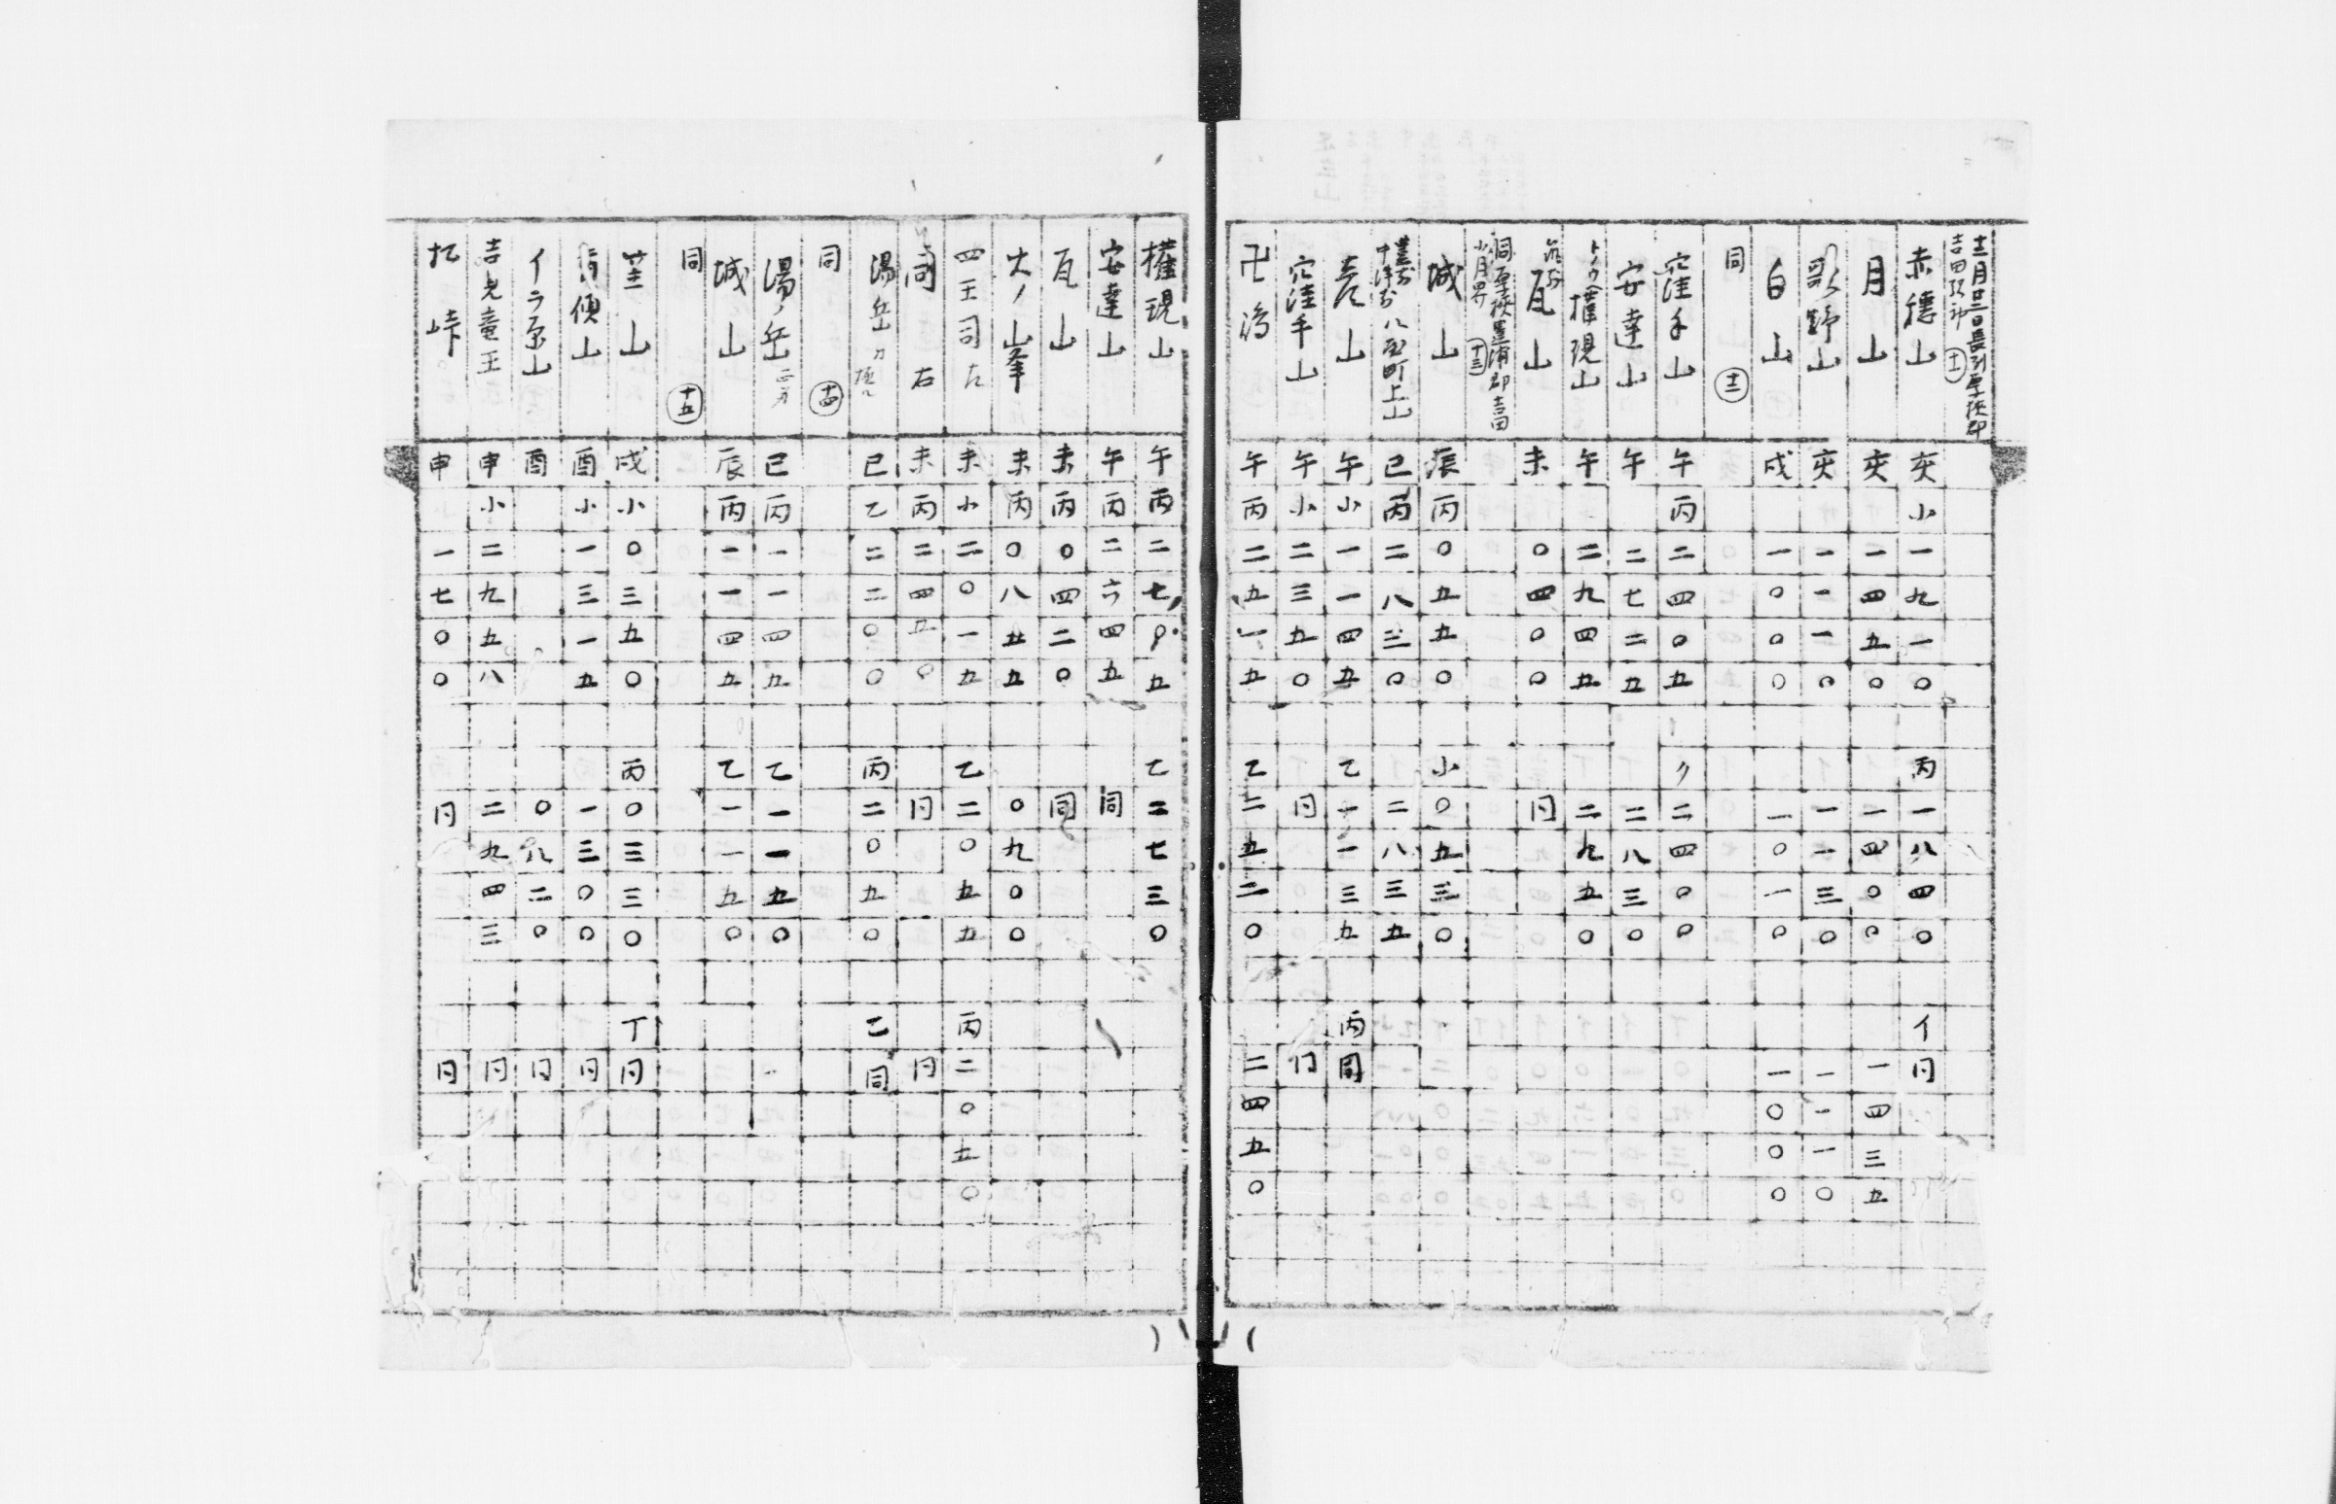 十二月廿二日長州厚狭郡
吉田 十一
赤穂山 亥 小 一九一〇 丙 一八四〇 イ 同
月山 亥 一四五〇 一四〇〇 一四三五
野山 亥 一一一〇 一一三〇 一一一〇
白山 戌 一〇〇〇 一〇一〇 一〇〇〇
同 十二
窪手山 午 丙 二四〇五 〃 二四〇〇
安達山 午 二七二五 二八三〇
権現山 午 二九四五 二九五〇
瓦山 未 〇四〇〇 同
同 厚狭 豊浦郡 吉田
小月 十三
城山 辰 丙 〇五五〇 小 〇五三〇
八 町上山 巳 丙 二八三〇 二八三五
山 午 小 一一四五 乙 一一三五 丙 同
窪手山 午 小 二三五〇 同 同
卍 午 丙 二五一五 乙 二五二〇 二四五〇
権現山 午 丙 二七〇五 乙 二七三〇
安達山 午 丙 二六四五 同
瓦山 未 丙 〇四二〇 同
大ノ山峯 未 丙 〇八五五 〇九〇〇
四王司 左 未 小 二〇一五 乙 二〇五五 丙 二〇五〇
同 右 未 丙 二四五〇 同 同
湯岳 巳 乙 二二〇〇 丙 二〇五〇 乙 同
同 十四
湯ノ岳 巳 丙 一一四五 乙 一一五〇
城山 辰 丙 一一四五 乙 一一五〇
同 十五
笠山 戌 小 〇三五〇 丙 〇三三〇 丁 同
山 酉 小 一三一五 一三〇〇 同
イラ原山 酉 〇八二〇 同
吉老竜王 申 小 二九五八 二九四三 同
峠 申 一七〇〇 同 同